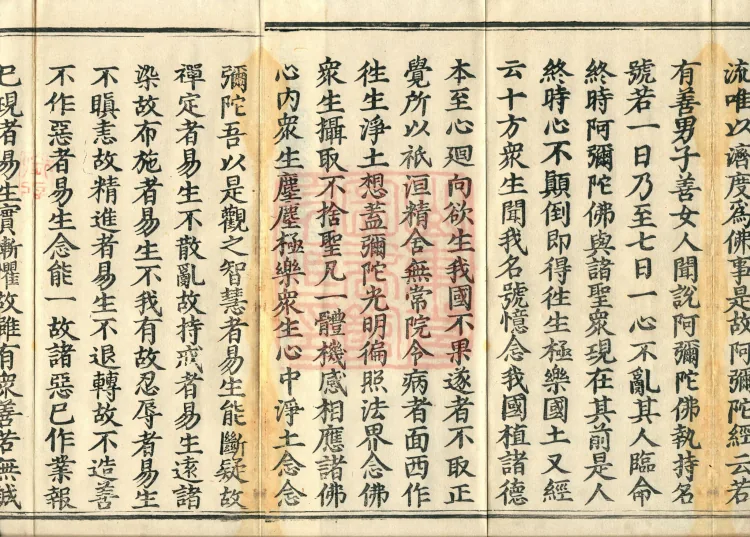 流唯以濟度爲佛事是故阿彌陀經云若
有善男子善女人聞說阿彌陀佛執持名
號若一日乃至七日一心不亂其人臨命
終時阿彌陀佛與諸聖衆現在其前是人
終時心不顚倒即得徃生極樂國土又經
云十方衆生聞我名號憶念我國植諸德
本至心廻向欲生我國不果遂者不取正
覺所以祇洹精舍無常院令病者面西作
徃生淨土想蓋彌陀光明徧照法界念佛
衆生攝取不捨聖凡一體機感相應諸佛
心內衆生塵塵極樂衆生心中淨土念念
彌陀吾以是觀之智慧者易生能斷疑故
禪定者易生不散亂故持戒者易生遠諸
染故布施者易生不我有故忍辱者易生
不瞋恚故精進者易生不退轉故不造善
不作惡者易生念能一故諸惡已作業報
已現者易生實慚懼故雖有衆善若無誠